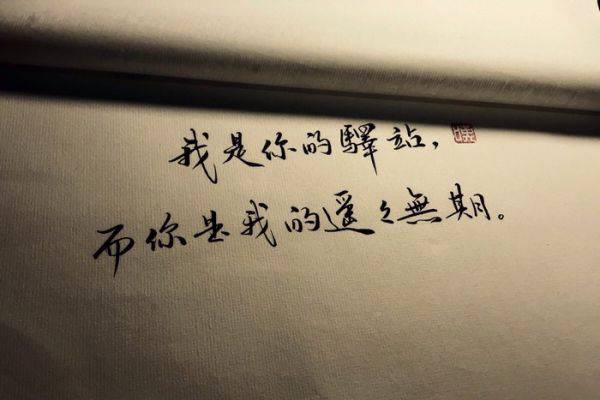 我是你的驛站，
而你是我的遥々無期。